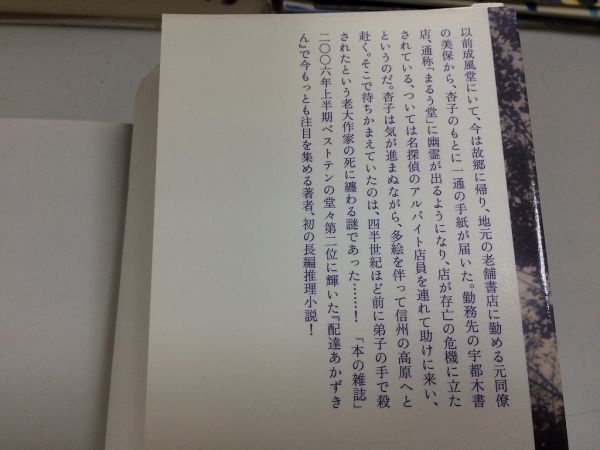 以前成風堂にいて、今は故郷に帰り、地元の老舗書店に勤める元同僚
の美保から、杏子のもとに一通の手紙が届いた。勤務先の宇都木書
店、通称「まるう堂」に幽霊が出るようになり、店が存亡の危機に立た
されている、ついては名探偵のアルバイト店員を連れて助けに来い、
というのだ。杏子は気が進まぬながら、多絵を伴って信州の高原へと
赴く。そこで待ちかまえていたのは、四半世紀ほど前に弟子の手で殺
されたという老大作家の死に纏わる謎であった……！　「本の雑誌」
二〇〇六年上半期ベストテンの堂々第二位に輝いた『配達あかずき
ん』で今もっとも注目を集める著者、初の長編推理小説！